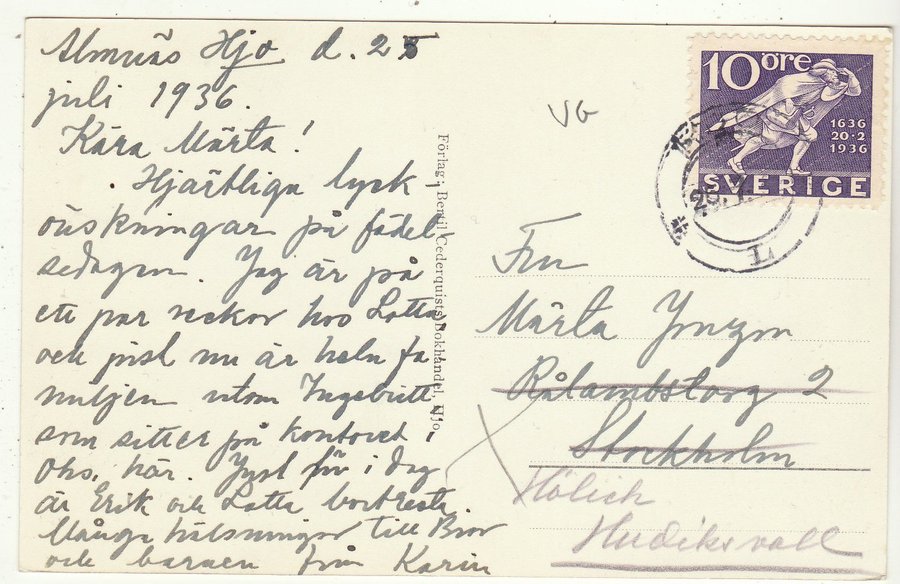 Almnäs Hjo d. 25
juli 1936.
Kära Märta!
Hjärtliga lyck-
önskningar på födel-
sedagen. Jag är på
ett par veckor hos Lotta,
och just nu är hela fa
miljen utom Ingebritt
som sitter på kontoret i
Sths, här. Just för i dag
är Erik och Lotta bortresta.
Många hälsningar till Bror
och barnen från Karin
Förlag: Bertil Cederquists Bokhandel, Hjo.
VG
10 öre
1636
20·2
1936
SVERIGE
29.7.
Fru
Märta Yngzon
Rålambstorg 2
Stockholm
Hölick
Hudiksvall